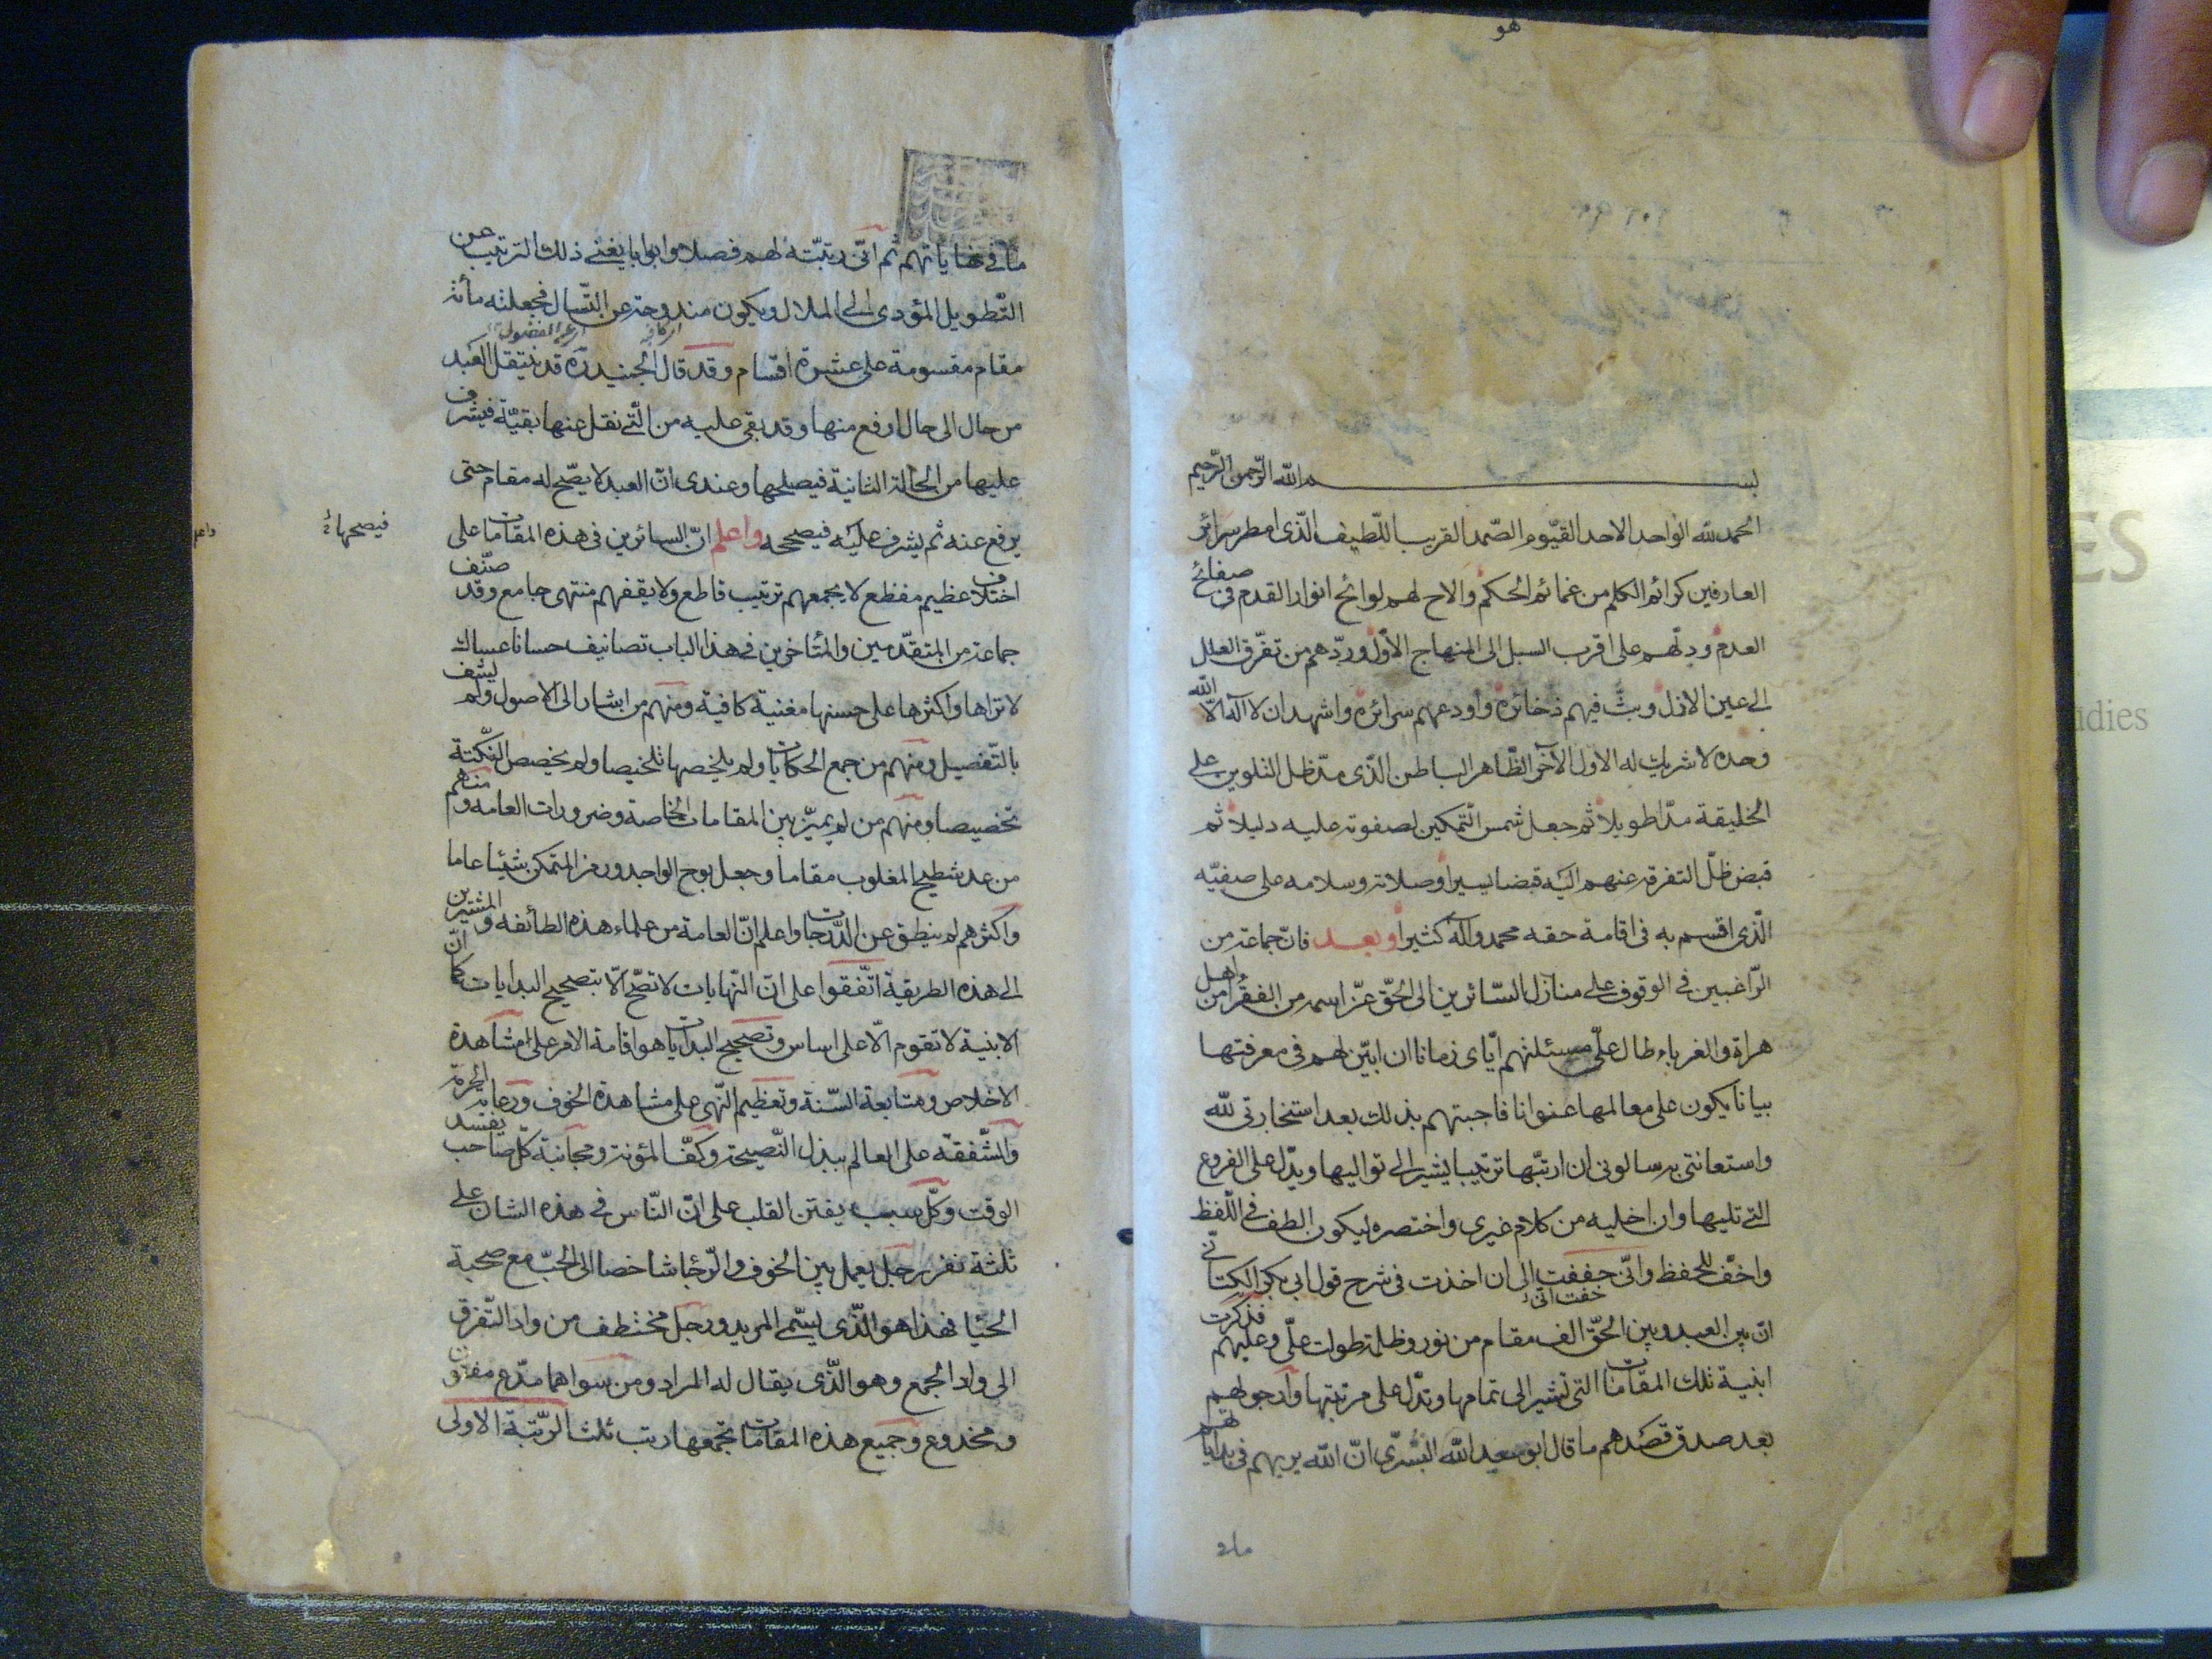 هو
بسم الله الرحمن الرحيم
الحمد لله الواحد الاحد القيّوم الصّمد القريب اللّطيف الّذى امطر سرائر
العارفين كرائم الكلم من غمائم الحكم والاح لهم لوائح انوار القدم فى صفائح
العدم ودلّهم على اقرب السبل الى المنهاج الاوّل وردّهم من تفرّق العلل
الى عين الازل وبثّ فيهم ذخائره واودعهم سرائره واشهد ان لا اله الّا الله
وحده لا شريك له الاول الآخر الظّاهر الباطن الّذى مدّ ظل التلوين على
الخليقة مدّا طويلا ثم جعل شمس التّمكين لصفوته عليه دليلا ثم
قبض ظلّ التفرقه عنهم اليه قبضا يسيرا وصلاته وسلامه على صفيّه
الّذى اقسم به فى اقامة حقه محمد وآله كثيرا وبعد فانّ جماعة من
الرّاغبين فى الوقوف على منازل السّائرين الى الحقّ عزّ اسمه من الفقرا من اهل
هراة والغرباء طال علىّ مسئلتهم ايّاى زمانا ان ابيّن لهم فى معرفتها
بيانا يكون على معالمها عنوانا فاجبتهم بذلك بعد استخارتى لله
واستعانتى به وسالونى ان ارتّبها ترتيبا يشير الى تواليها ويدّل على الفروع
التى تليها وان اخليه من كلام غيرى واختصره ليكون الطف فى اللّفظ
واخفّ للحفظ وانّى خفت الى ان اخذت فى شرح قول ابى بكر الكتانّى
خفت انّى
انّ بين العبد وبين الحقّ الف مقام من نور وظلمة طولت علىّ وعليهم فذكرت
ابنية تلك المقامات التى تشير الى تمامها وتدّل على مرتبتها وارجو لهم
بعد صدق قصدهم ما قال ابو عبيد الله البسرّى انّ الله يريهم فى بداياتهم
ما فى
ما فى نهاياتهم ثم انّى رتبّته لهم فصلا وابوابا يغنى ذلك الترتيب عن
التّطويل المؤدى الى الملال ويكون مندوحة عن التّسال فجعلته مائة
مقام مقسومة على عشرة اقسام وقد قال الجنيد ره قد ينتقل العبد
من حال الى حال ارفع منها وقد بقى عليه من الّتى نقل عنها بقيّة فيشرف
عليها من الحالة الثانية فيصلحها وعندى انّ العبد لا يصّح له مقام حتى
يرفع عنه ثم يشرف عليه فيصححه واعلم انّ السائرين فى هذه المقامات على
فيصححها
اختلاف عظيم مفظع لا يجمعهم ترتيب قاطع ولا يقفهم منتهى جامع وقد صنّف
جماعة من المتقدّمين والمتأخرين فى هذا الباب تصانيف حسانا عساك
لا تراها واكثرها على حسنها مغنية كافية ومنهم من اشار الى الاصول ولم يشف
بالتّفصيل ومنهم من جمع الحكايات ولم يلخصها تلخيصا ولم يخصص النّكتة
تخصيصا ومنهم من لم يميّز بين المقامات الخاصة وضرورات العامه ومنهم
من عد شطح المغلوب مقاما وجعل بوح الواجد ورمز المتمكن شيئا عاما
واكثرهم لم ينطق عن الدّرجات واعلم انّ العامة من علماء هذه الطائفه والمشيرين
الى هذه الطريقة اتّفقوا على انّ النّهايات لا تصّح الّا بتصحيح البدايات كما انّ
الابنية لا تقوم الّا على اساس وتصحيح البدايات هو اقامة الامر على مشاهدة
الاخلاص ومتابعة السّنة وتعظيم النّهى على مشاهدة الخوف ورعاية الحرمة
والشّفقه على العالم ببذل النّصيحة وكفّ المؤنة ومجانبة كلّ صاحب يفسد
الوقت وكلّ سبب يفتن القلب على انّ النّاس فى هذه الشان على
ثلثة نفر رجل يعمل بين الخوف والرّجا شاخصا الى الحبّ مع صحبة
الحيا فهذا هو الّذى يسّمى المريد ورجل مختطف من واد التّفرق
الى واد الجمع وهو الّذى يقال له المراد ومن سواهما مدّع مفتون
ومخدوع وجميع هذه المقامات تجمعها رتب ثلث الرّتبة الاولى